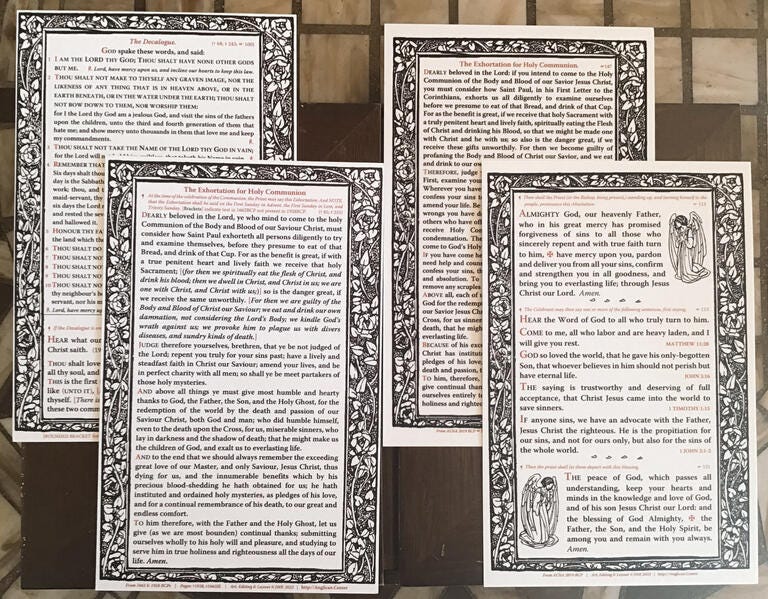 The Decalogue.
GOD spake these words, and said:
1 I AM THE LORD THY GOD; THOU SHALT HAVE NONE OTHER GODS
BUT ME. R. Lord, have mercy upon us, and incline our hearts to keep this law.
2 THOU SHALT NOT MAKE TO THYSELF ANY GRAVEN IMAGE, NOR THE
LIKENESS OF ANY THING THAT IS IN HEAVEN ABOVE, OR IN THE
EARTH BENEATH, OR IN THE WATER UNDER THE EARTH; THOU SHALT
NOT BOW DOWN TO THEM, NOR WORSHIP THEM:
for I the Lord thy God am a jealous God, and visit the sins of the fathers
upon the children, unto the third and fourth generation of them that
hate me; and show mercy unto thousands in them that love me and keep
my commandments. R.
3 THOU SHALT NOT TAKE THE NAME OF THE LORD THY GOD IN VAIN;
for the Lord will
4 REMEMBER THAT
Six days shalt thou
day is the Sabbath
work; thou, and
maid-servant, thy
six days the Lord
and rested the
and hallowed it.
5 HONOUR THY FA
the land which the
6 THOU SHALT DO
7 THOU SHALT NOT
8 THOU SHALT NOT
9 THOU SHALT NOT
10 THOU SHALT NOT
thy neighbour's
servant, nor his
R. Lord, have mercy
If the Decalogue is
HEAR what our
Christ saith.
THOU shalt love
all thy soul, and
THIS is the first
like (UNTO) it,
thyself.
these two comm
The Exhortation for Holy Communion
At the time of the celebration of the Communion, the Priest may say this Exhortation. And NOTE
that the Exhortation shall be said on the First Sunday in Advent, the First Sunday in Lent, and
Trinity Sunday. [Brackets] indicate text in 1662BCP not present in 1928BCP.
DEARLY beloved in the Lord, ye who mind to come to the holy
Communion of the Body and Blood of our Saviour Christ, must
consider how Saint Paul exhorteth all persons diligently to try
and examine themselves, before they presume to eat of that
Bread, and drink of that Cup. For as the benefit is great, if with
a true penitent heart and lively faith we receive that holy
Sacrament; [(for then we spiritually eat the flesh of Christ, and
drink his blood; then we dwell in Christ, and Christ in us; we are
one with Christ, and Christ with us;)] so is the danger great, if
we receive the same unworthily. [For then we are guilty of the
Body and Blood of Christ our Saviour; we eat and drink our own
damnation, not considering the Lord's Body; we kindle God's
wrath against us; we provoke him to plague us with divers
diseases, and sundry kinds of death.]
JUDGE therefore yourselves, brethren, that ye be not judged of
the Lord; repent you truly for your sins past; have a lively and
steadfast faith in Christ our Saviour; amend your lives, and be
in perfect charity with all men; so shall ye be meet partakers of
those holy mysteries.
AND above all things ye must give most humble and hearty
thanks to God, the Father, the Son, and the Holy Ghost, for
the redemption of the world by the death and passion of our
Saviour Christ, both God and man; who did humble himself,
even to the death upon the Cross, for us, miserable sinners, who
lay in darkness and the shadow of death; that he might make us
the children of God, and exalt us to everlasting life.
AND to the end that we should always remember the exceeding
great love of our Master, and only Saviour, Jesus Christ, thus
dying for us, and the innumerable benefits which by his
precious blood-shedding he hath obtained for us; he hath
instituted and ordained holy mysteries, as pledges of his love,
and for a continual remembrance of his death, to our great and
endless comfort.
TO him therefore, with the Father and the Holy Ghost, let us
give (as we are most bounden) continual thanks; submitting
ourselves wholly to his holy will and pleasure, and studying to
serve him in true holiness and righteousness all the days of our
life. Amen.
http://Anglican.Center
The Exhortation for Holy Communion.
DEARLY beloved in the Lord: if you intend to come to the Holy
Communion of the Body and Blood of our Savior Jesus Christ,
you must consider how Saint Paul, in his First Letter to the
Corinthians, exhorts us all diligently to examine ourselves
before we presume to eat of that Bread, and drink of that Cup.
For as the benefit is great, if we receive that holy Sacrament with
a truly penitent heart and lively faith, spiritually eating the Flesh
of Christ and drinking his Blood, so that we might be made one
with Christ and he with us; so also is the danger great, if we
receive these gifts unworthily. For then we become guilty of
profaning the Body and Blood of Christ our Savior, and we eat
and drink to our ow
THEREFORE, judge y
First, examine your
Wherever you have
confess your sins t
amend your life. Be
wrongs you have d
others who have off
receive Holy Com
condemnation. The
come to God's Holy
IF you have come he
need help and coun
confess your sins, th
and absolution. To
remove any scruples
ABOVE all, each of
God for the redemp
our Savior Jesus Ch
Cross, for us sinner
death, that he migh
everlasting life.
BECAUSE of his exc
Christ has instituti
pledges of his love,
death and passion,
TO him, therefore,
give continual than
ourselves entirely to
holiness and righteo
Then shall the Priest (or the Bishop, being present) standing up, and turning himself to the
people, pronounce this Absolution.
ALMIGHTY God, our heavenly Father,
who in his great mercy has promised
forgiveness of sins to all those who
sincerely repent and with true faith turn
to him, ✠ have mercy upon you, pardon
and deliver you from all your sins, confirm
and strengthen you in all goodness, and
bring you to everlasting life; through Jesus
Christ our Lord. Amen.
The Celebrant may then say one or more of the following sentences, first saying,
HEAR the Word of God to all who truly turn to him.
COME to me, all who labor and are heavy laden, and I
will give you rest. MATTHEW 11:28
GOD so loved the world, that he gave his only-begotten
Son, that whoever believes in him should not perish but
have eternal life. JOHN 3:16
THE saying is trustworthy and deserving of full
acceptance, that Christ Jesus came into the world to
save sinners. 1 TIMOTHY 1:15
IF anyone sins, we have an advocate with the Father,
Jesus Christ the righteous. He is the propitiation for
our sins, and not for ours only, but also for the sins of
the whole world. 1 JOHN 2:1-2
Then the priest shall let them depart with this blessing.
THE peace of God, which passes all
understanding, keep your hearts and
minds in the knowledge and love of God,
and of his son Jesus Christ our Lord; and
the blessing of God Almighty, ✠ the
Father, the Son, and the Holy Spirit, be
among you and remain with you always.
Amen.
From ACNA 2019 BCP | Art, Editing & Layout © DHR 2022 | http://Anglican.Center